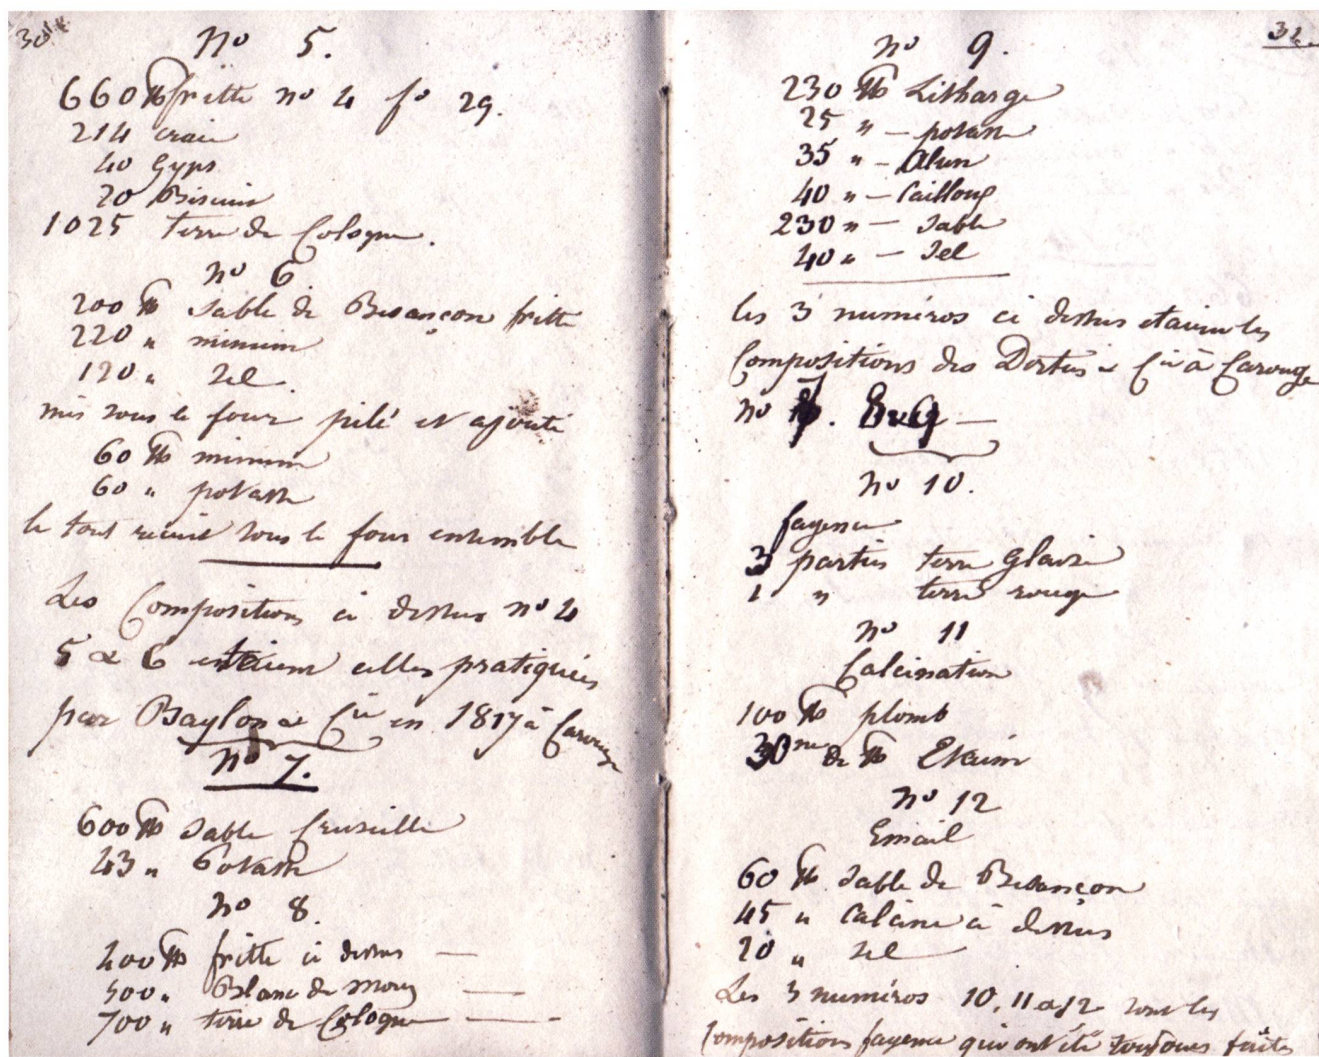 No 5.
660 ℔ fritte no 4 fo 29.
214 craie
40 Gyps
20 Biscuit
1025 terre de Cologne.
no 6
200 ℔ Sable de Besançon fritte
220 " minium
120 " Sel.
mis sous le four pilé et ajouté
60 ℔ minium
60 " potasse
le tout recuit sous le four ensemble
Les Compositions ci dessus no 4
5 & 6 etaient celles pratiquées
par Baylon & Cie en 1817 à Carouge
no 7.
600 ℔ Sable Cruseille
43 " Potasse
no 8.
400 ℔ fritte ci dessus —
500 " Blanc de —
700 " terre de Cologne —
32
no 9.
230 ℔ Litharge
25 " – potasse
35 " – Alun
40 " – Cailloux
230 " – Sable
40 " – Sel
les 3 numéros ci dessus etaient les
Compositions des Dortu & Cie à Carouge
no 7. 8 & 9 —
no 10.
fayence
3 parties terre Glaise
1 " terre rouge
no 11
Calcination
100 ℔ plomb
30 de ℔ Etaim
no 12
Email
60 ℔ Sable de Besançon
45 " Calcine ci dessus
20 " Sel
Les 3 numéros 10, 11 & 12 sont les
Compositions fayence qui ont été toujours faites